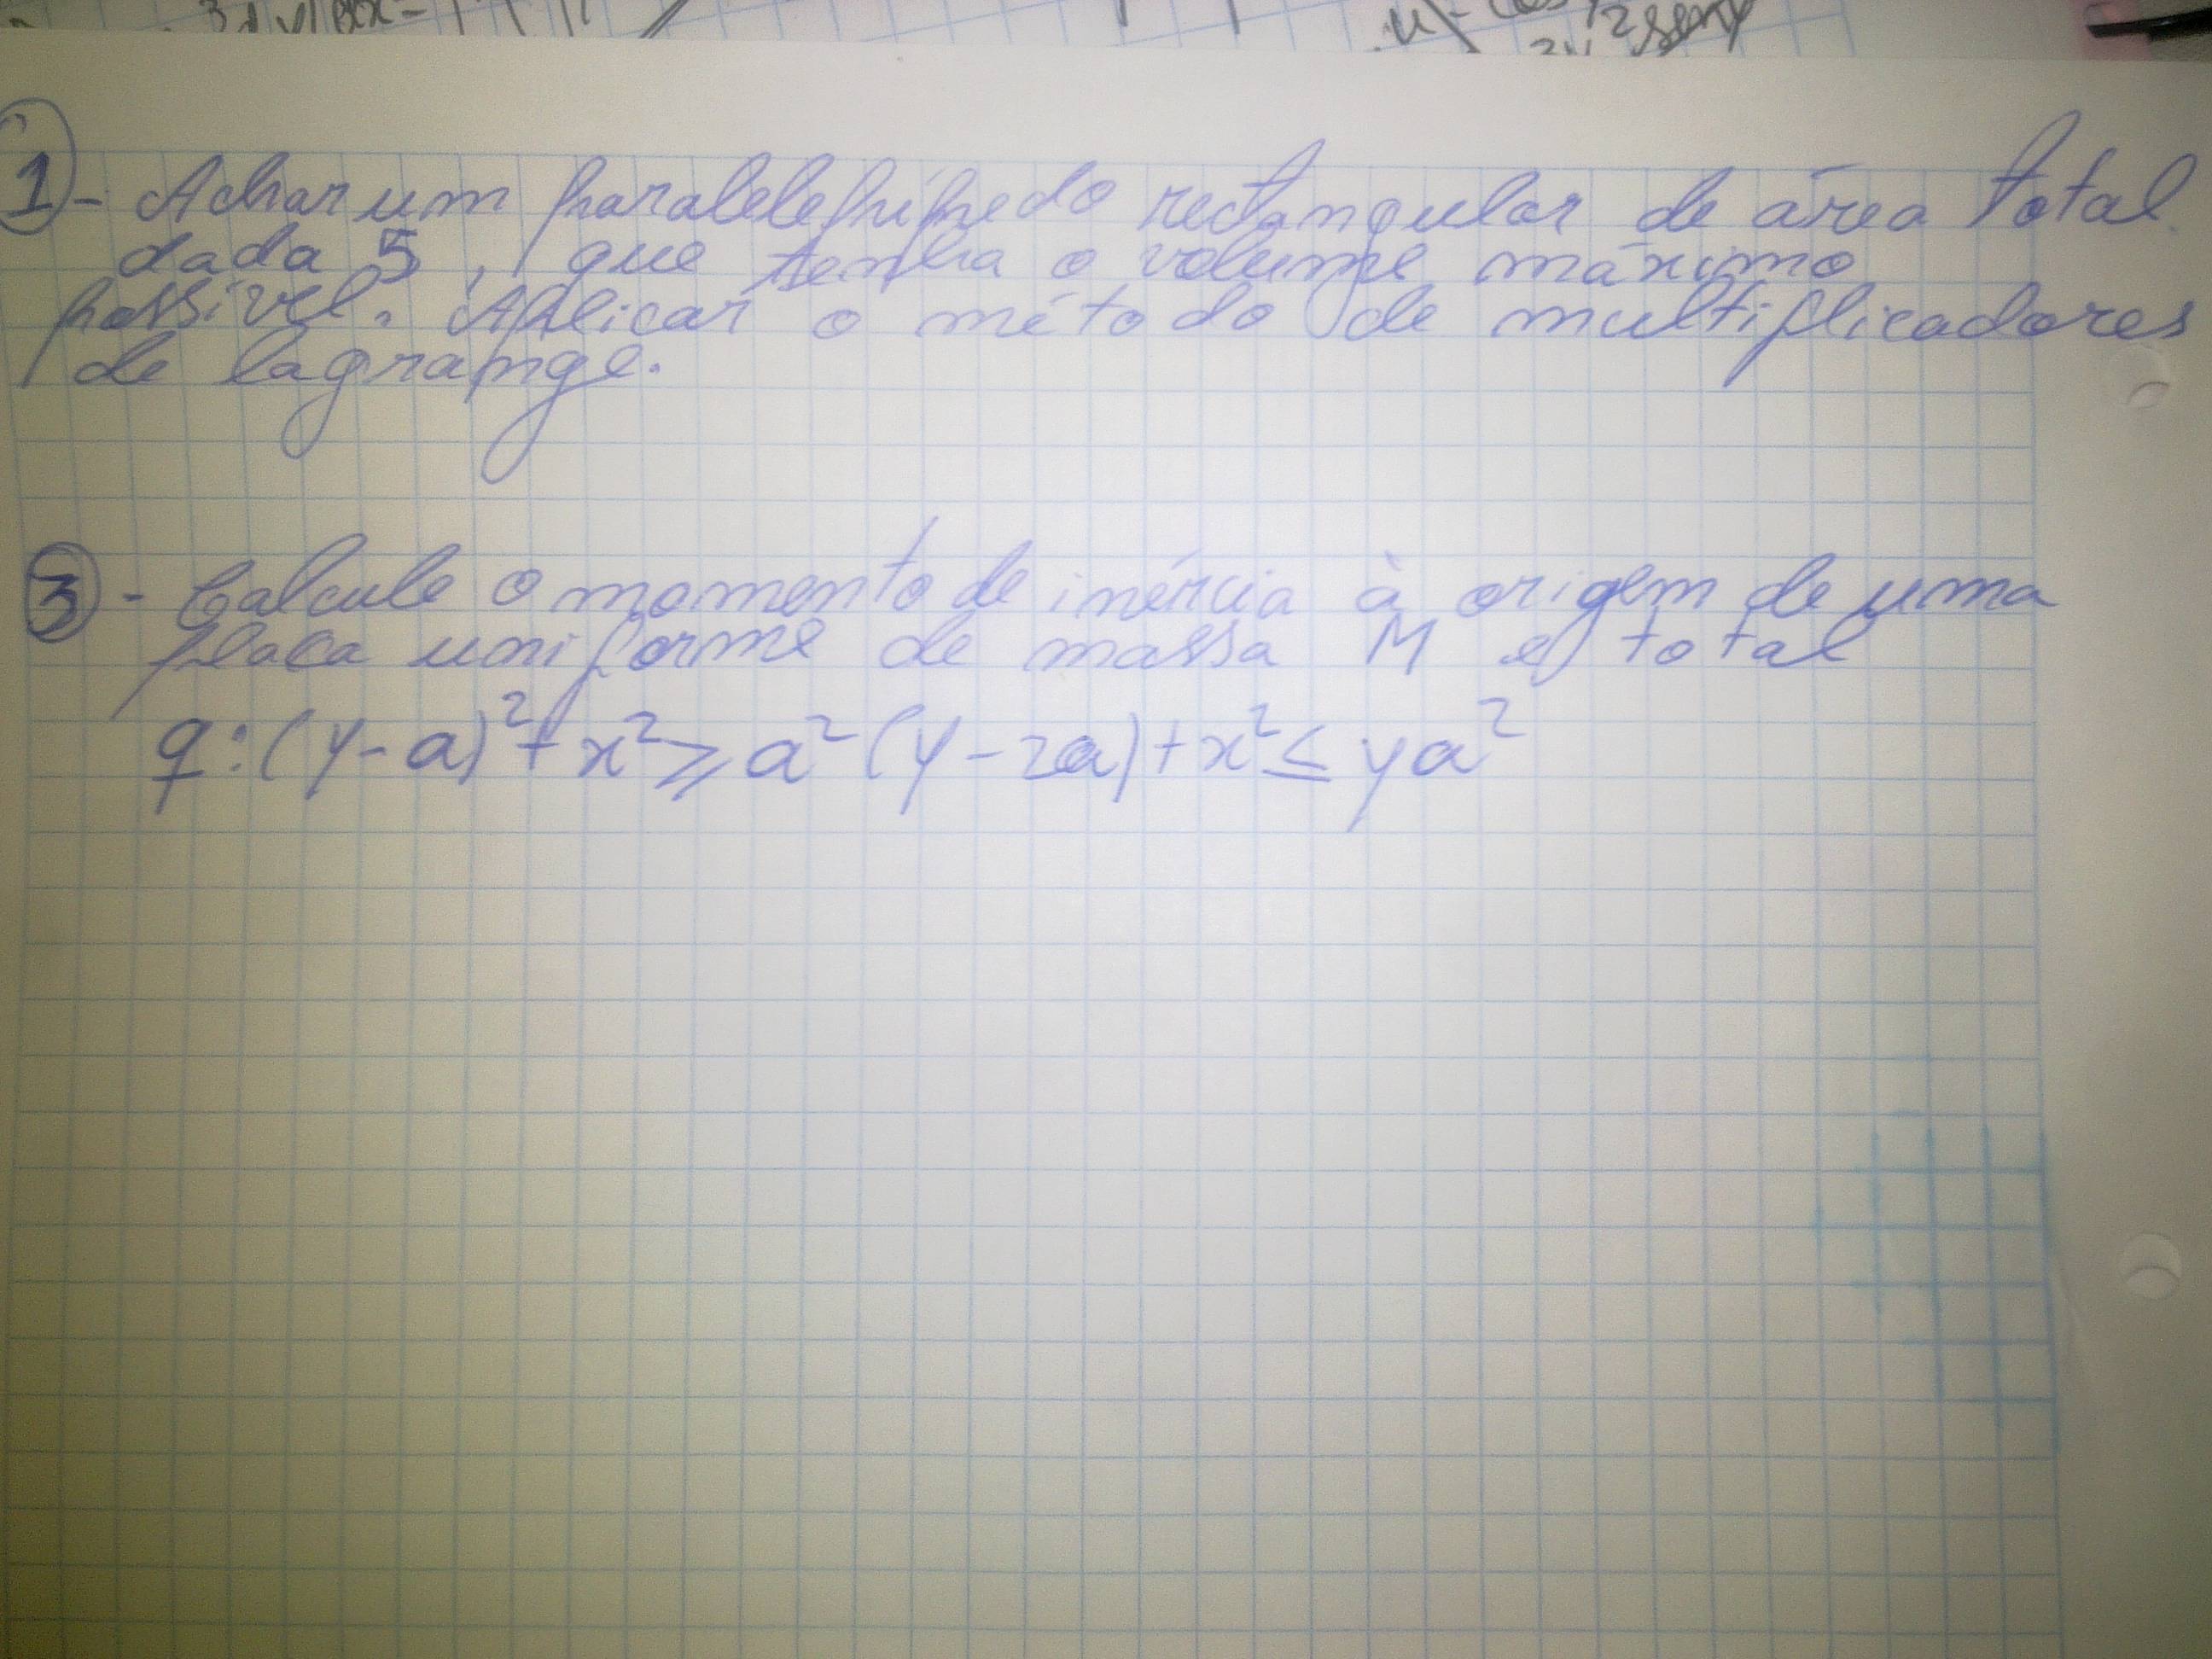 1 - Achar um paralelepípedo rectangular de área total
dada 5, que tenha o volume máximo
possível. Aplicar o método de multiplicadores
de lagrange.
3 - Calcule o momento de inércia à origem de uma
placa uniforme de massa M e total
q: (y-a)²+x²⩾a² (y-2a)+x²≤ya²